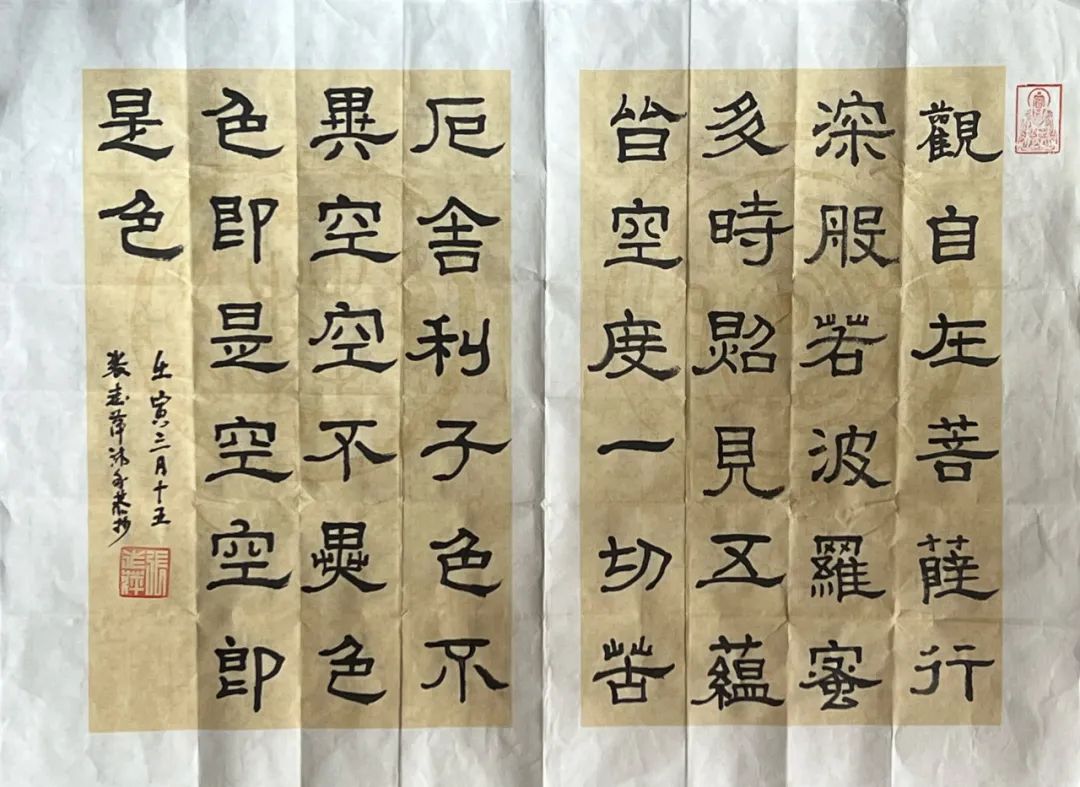 觀自在菩薩行
深般若波羅蜜
多時照見五蘊
皆空度一切苦
厄舍利子色不
異空空不異色
色即是空空即
是色
壬寅三月十五
張志萍沐手恭抄
張志萍